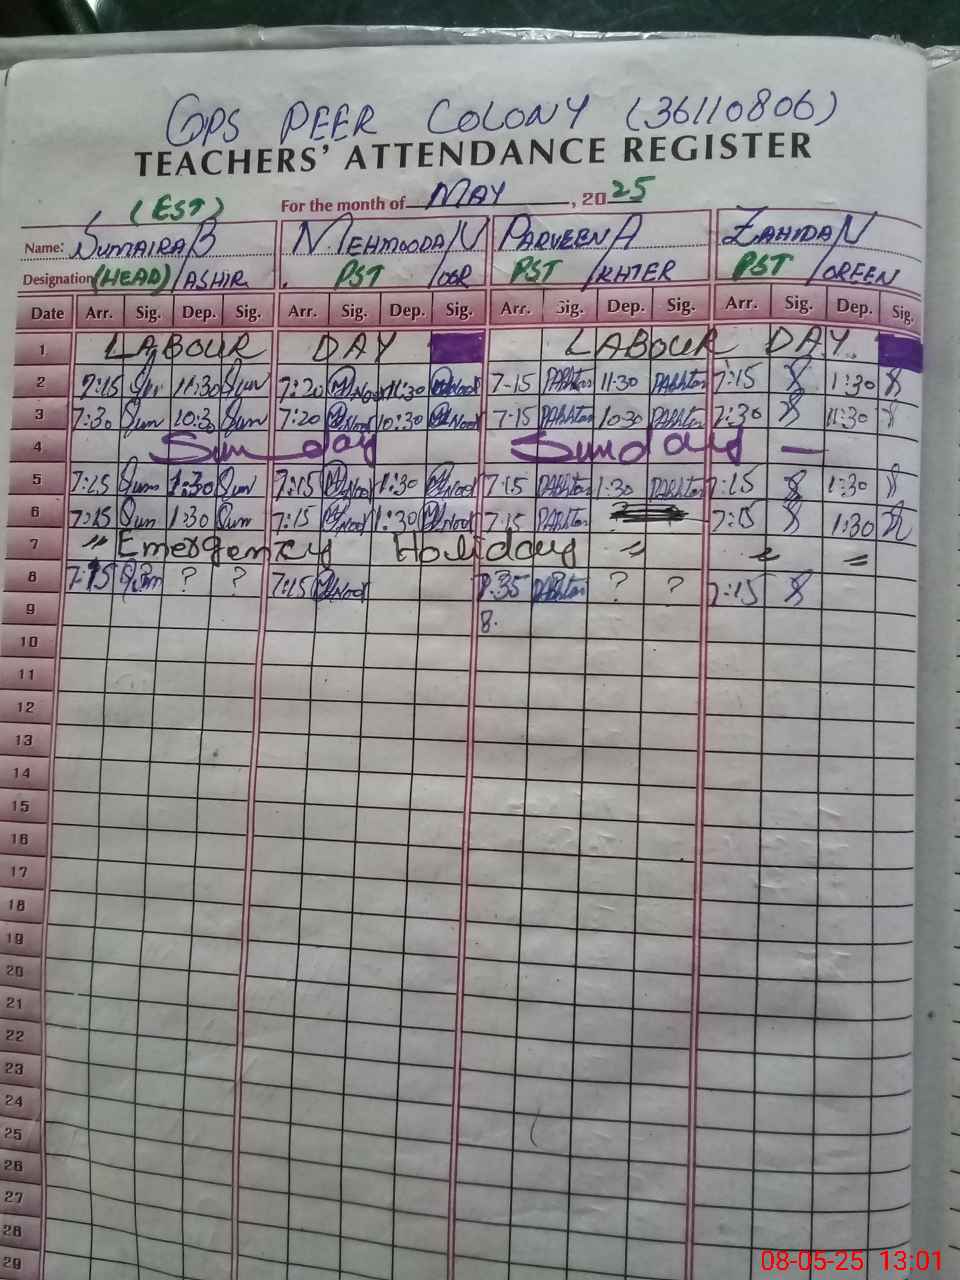 GPS PEER COLONY (36110806)
TEACHERS' ATTENDANCE REGISTER
(EST) For the month of MAY, 2025
Name: SUMAIRA B MEHMOODA N PARVEEN A ZAHIDA N
Designation (HEAD) /ASHIR PST /OOR PST /KHTER PST /OREEN
Date Arr. Sig. Dep. Sig. Arr. Sig. Dep. Sig. Arr. Sig. Dep. Sig. Arr. Sig. Dep. Sig.
1 LABOUR DAY LABOUR DAY
2 7:15 Sum 11:30 Sum 7:20 M.Noor 11:30 M.Noor 7-15 PAkhter 11-30 PAkhter 7:15 11:30
3 7:30 Sum 10:30 Sum 7:20 M.Noor 10:30 M.Noor 7-15 PAkhter 10-30 PAkhter 7:30 11:30
4 Sunday Sunday —
5 7:15 Sum 1:30 Sum 7:15 M.Noor 1:30 M.Noor 7-15 PAkhter 1-30 PAkhter 7:15 1:30
6 7:15 Sum 1:30 Sum 7:15 M.Noor 1:30 M.Noor 7-15 PAkhter 7:15 1:30
7 " Emergency Holiday " " "
8 7:15 Sum ? ? 7:15 M.Noor 7.35 PAkhter ? ? 7:15
9 8.
10
11
12
13
14
15
16
17
18
19
20
21
22
23
24
25
26
27
28
29
08-05-25 13:01